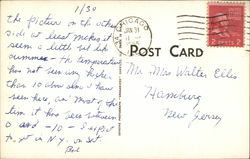 1/30
The picture on the other
side at least makes it
seem a little bit like
summer - the temperature
has not been any higher
than 10 above since I have
been here, and most of the
time it has been between
0 and -10 - Expect
to get in N.Y. on Sat.
CHICAGO
JAN 31
POST CARD
2 CENTS 2
Mr. Mrs Walter Ellis
Hamburg
New Jersey